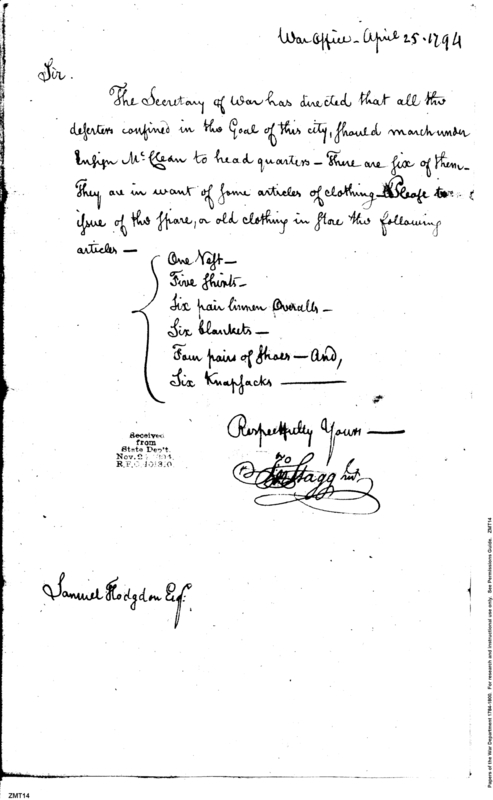 War Office - April 25. 1794
Sir.
The Secretary of War has directed that all the
deserters confined in the Goal of this city, should march under
Ensign Mc.Clean to head quarters - There are six of them -
They are in want of some articles of clothing - Please to
issue of the spare, or old clothing in store the following
articles -
One Vest -
Five shirts -
Six pair linnen Overalls -
Six blankets -
Four pairs of Shoes - And,
Six Knapsacks -
Respectfully Yours -
Jno Stagg Junr.
Received
from
State Dep't.
Nov. 2
R.F.C.
Samuel Hodgdon Esqr.
ZMT14
Papers of the War Department 1784-1800. For research and instructional use only. See Permissions Guide. ZMT14